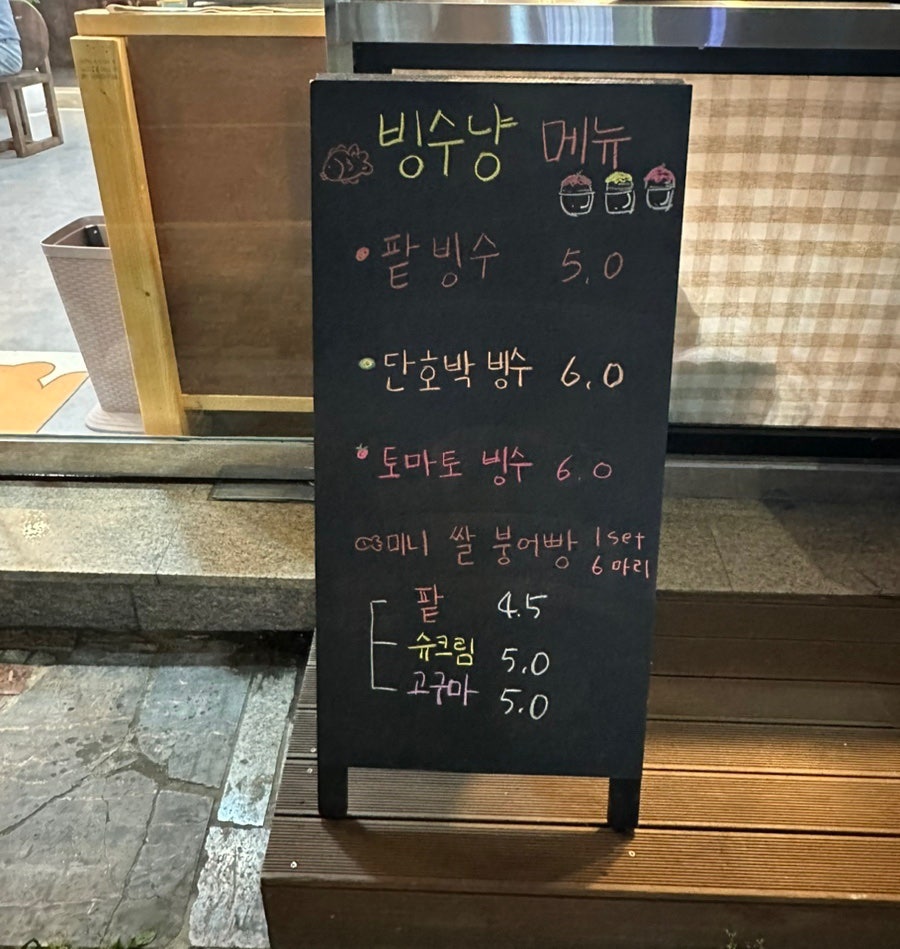 빙수냥 메뉴
팥빙수 5.0
단호박 빙수 6.0
토마토 빙수 6.0
미니 쌀 붕어빵 1set
6마리
팥 4.5
슈크림 5.0
고구마 5.0